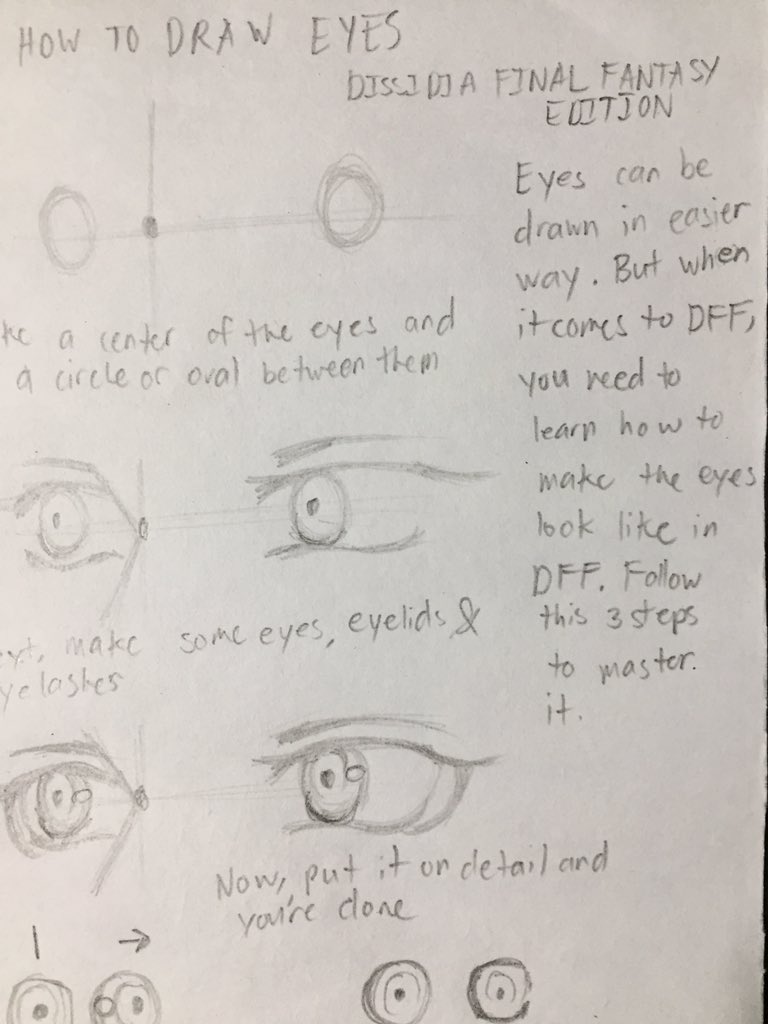 HOW TO DRAW EYES
DISSIDIA FINAL FANTASY
EDITION
Eyes can be
drawn in easier
way. But when
it comes to DFF,
you need to
learn how to
make the eyes
look like in
DFF. Follow
this 3 steps
to master.
it.
a center of the eyes and
a circle or oval between them
make some eyes, eyelids, &
Now, put it on detail and
you're done